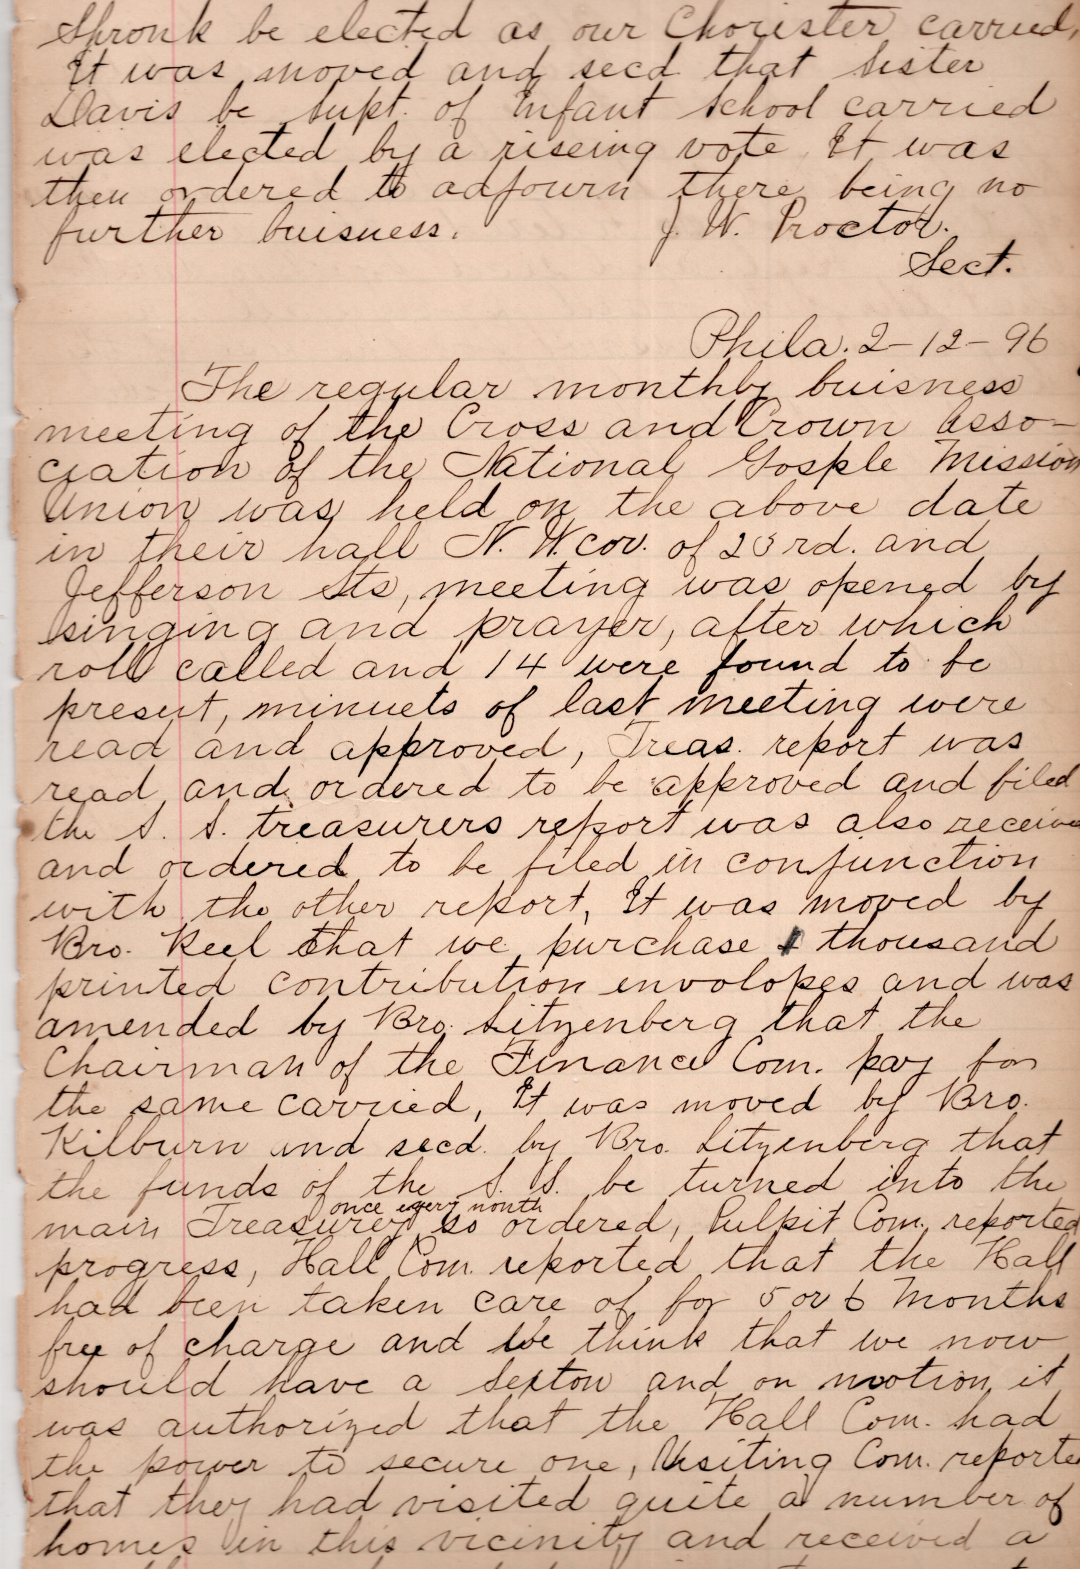 Spronk be elected as our Chorister carried,
It was moved and secd that Sister
Davis be supt. of Infant School carried
was elected by a riseing vote. It was
then ordered to adjourn there being no
further buisness. J. W. Proctor.
Sect.
Phila. 2-12-96
The regular monthly buisness
meeting of the Cross and Crown Asso-
ciation of the National Gosple Mission
Union was held on the above date
in their hall N. W. cor. of 23rd. and
Jefferson Sts, meeting was opened by
singing and prayer, after which
roll called and 14 were found to be
present, minuets of last meeting were
read and approved, Treas. report was
read and ordered to be approved and filed
the S. S. treasurers report was also receive
and ordered to be filed in conjunction
with the other report, It was moved by
Bro. Keel that we purchase 1 thousand
printed contribution envolopes and was
amended by Bro. Litzenberg that the
Chairman of the Finance Com. pay for
the same carried, It was moved by Bro.
Kilburn and secd. by Bro. Litzenberg that
the funds of the S. S. be turned into the
once every month
main Treasurey, so ordered, Pulpit Com. reported
progress, Hall Com. reported that the Hall
had been taken care of for 5 or 6 Months
free of charge and we think that we now
should have a Sexton and on motion it
was authorized that the Hall Com. had
the power to secure one, Visiting Com. reporte
that they had visited quite a number of
homes in this vicinity and received a